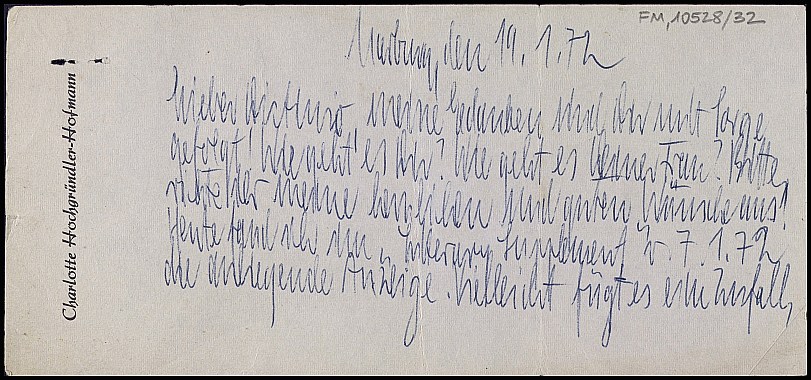 FM, 10528/32
Charlotte Hochgründler-Hofmann
Marburg, den 19.1.72
Lieber meine Gedanken sind Dir mit Sorge
gefolgt! Wie geht es Dir? Wie geht es Deiner Frau? Bitte
richte ihr meine herzlichen und guten Wünsche aus!
Heute fand ich im „Literary Supplement" v. 7.1.72
die anliegende Anzeige. Vielleicht fügt es ein Zufall,